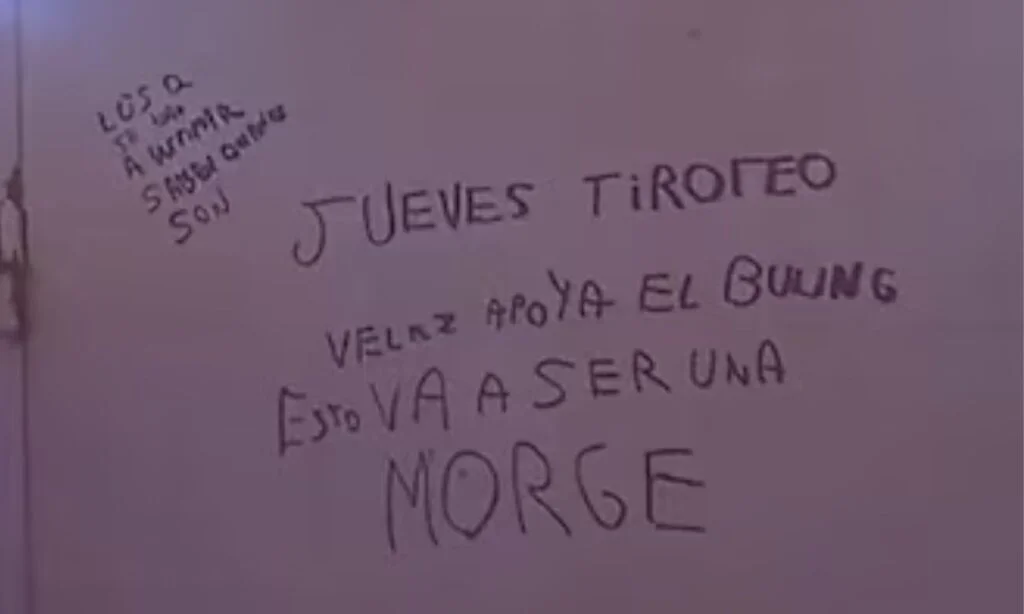 LOS Q
A
SABEN QUIENES
SON
JUEVES TIROTEO
VELAZ APOYA EL BULING
ESTO VA A SER UNA
MORGE